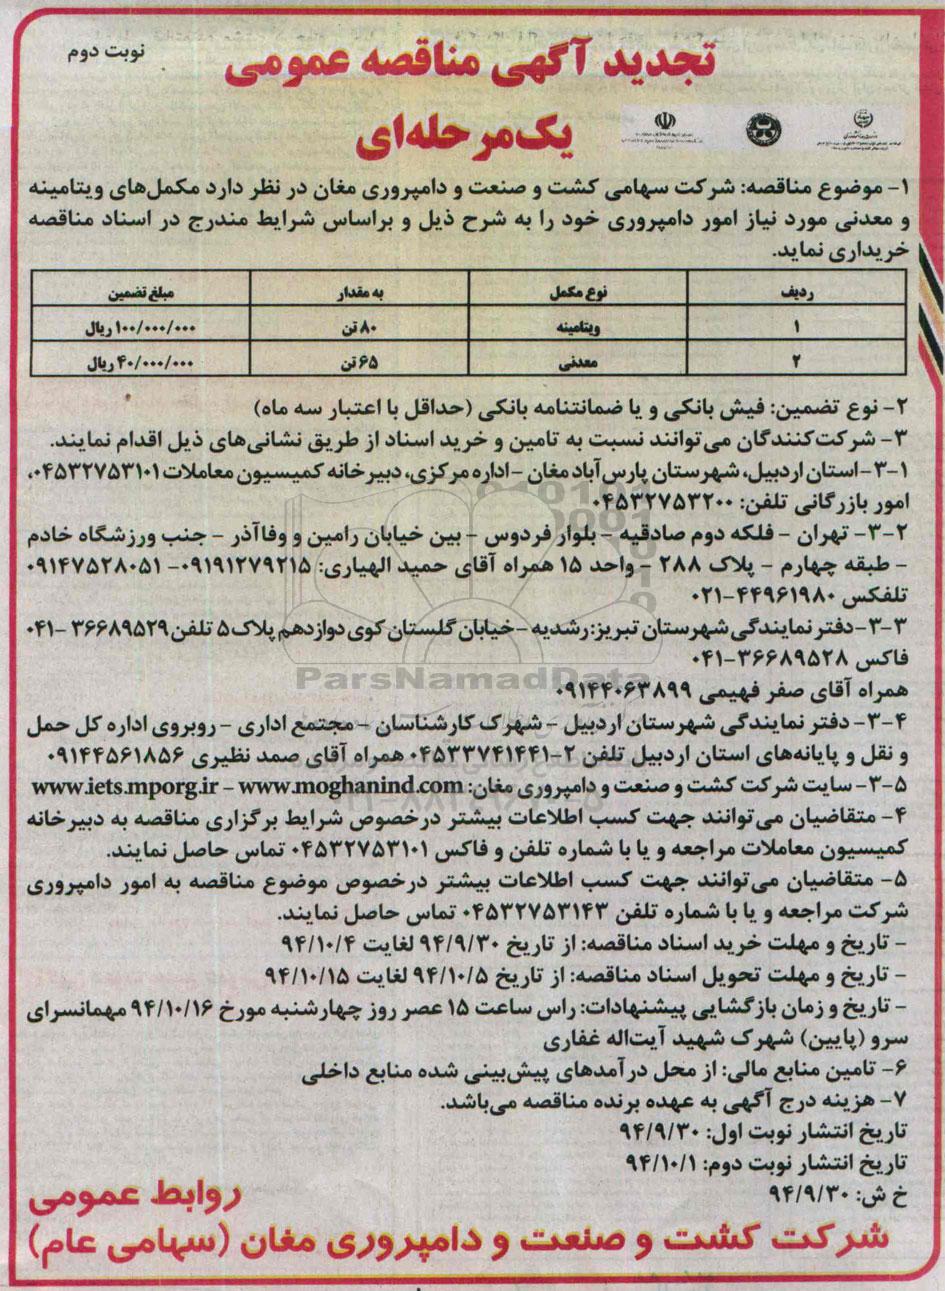 نوبت دوم
تجدید آگهی مناقصه عمومی
یک‌مرحله‌ای
۱- موضوع مناقصه: شرکت سهامی کشت و صنعت و دامپروری مغان در نظر دارد مکمل‌های ویتامینه
و معدنی مورد نیاز امور دامپروری خود را به شرح ذیل و براساس شرایط مندرج در اسناد مناقصه
خریداری نماید.
ردیف نوع مکمل به مقدار مبلغ تضمین
۱ ویتامینه ۸۰ تن ۱۰۰/۰۰۰/۰۰۰ ریال
۲ معدنی ۶۵ تن ۴۰/۰۰۰/۰۰۰ ریال
۲- نوع تضمین: فیش بانکی و یا ضمانتنامه بانکی (حداقل با اعتبار سه ماه)
۳- شرکت‌کنندگان می‌توانند نسبت به تامین و خرید اسناد از طریق نشانی‌های ذیل اقدام نمایند.
۳-۱- استان اردبیل، شهرستان پارس‌آباد مغان - اداره مرکزی، دبیرخانه کمیسیون معاملات ۰۴۵۳۲۷۵۳۱۰۱،
امور بازرگانی تلفن: ۰۴۵۳۲۷۵۳۲۰۰
۳-۲- تهران - فلکه دوم صادقیه - بلوار فردوس - بین خیابان رامین و وفاآذر - جنب ورزشگاه خادم
- طبقه چهارم - پلاک ۲۸۸ - واحد ۱۵ همراه آقای حمید الهیاری: ۰۹۱۹۱۲۷۹۲۱۵- ۰۹۱۴۷۵۲۸۰۵۱
تلفکس ۴۴۹۶۱۹۸۰-۰۲۱
۳-۳- دفتر نمایندگی شهرستان تبریز: رشدیه - خیابان گلستان کوی دوازدهم پلاک ۵ تلفن ۳۶۶۸۹۵۲۹ -۰۴۱
فاکس ۳۶۶۸۹۵۲۸-۰۴۱
همراه آقای صفر فهیمی ۰۹۱۴۴۰۶۳۸۹۹
۳-۴- دفتر نمایندگی شهرستان اردبیل - شهرک کارشناسان - مجتمع اداری - روبروی اداره کل حمل
و نقل و پایانه‌های استان اردبیل تلفن ۲-۰۴۵۳۳۷۴۱۴۴۱ همراه آقای صمد نظیری ۰۹۱۴۴۵۶۱۸۵۶
۳-۵- سایت شرکت کشت و صنعت و دامپروری مغان: www.iets.mporg.ir - www.moghanind.com
۴- متقاضیان می‌توانند جهت کسب اطلاعات بیشتر درخصوص شرایط برگزاری مناقصه به دبیرخانه
کمیسیون معاملات مراجعه و یا با شماره تلفن و فاکس ۰۴۵۳۲۷۵۳۱۰۱ تماس حاصل نمایند.
۵- متقاضیان می‌توانند جهت کسب اطلاعات بیشتر درخصوص موضوع مناقصه به امور دامپروری
شرکت مراجعه و یا با شماره تلفن ۰۴۵۳۲۷۵۳۱۴۳ تماس حاصل نمایند.
- تاریخ و مهلت خرید اسناد مناقصه: از تاریخ ۹۴/۹/۳۰ لغایت ۹۴/۱۰/۴
- تاریخ و مهلت تحویل اسناد مناقصه: از تاریخ ۹۴/۱۰/۵ لغایت ۹۴/۱۰/۱۵
- تاریخ و زمان بازگشایی پیشنهادات: راس ساعت ۱۵ عصر روز چهارشنبه مورخ ۹۴/۱۰/۱۶ مهمانسرای
سرو (پایین) شهرک شهید آیت‌اله غفاری
۶- تامین منابع مالی: از محل درآمدهای پیش‌بینی شده منابع داخلی
۷- هزینه درج آگهی به عهده برنده مناقصه می‌باشد.
تاریخ انتشار نوبت اول: ۹۴/۹/۳۰
تاریخ انتشار نوبت دوم: ۹۴/۱۰/۱
خ ش: ۹۴/۹/۳۰
روابط عمومی
شرکت کشت و صنعت و دامپروری مغان (سهامی عام)
ParsNamadData